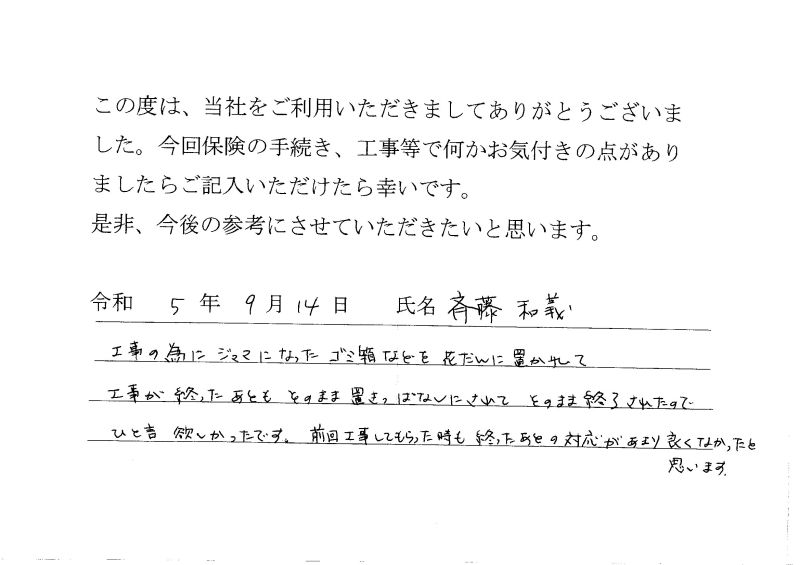 この度は、当社をご利用いただきましてありがとうございま
した。今回保険の手続き、工事等で何かお気付きの点があり
ましたらご記入いただけたら幸いです。
是非、今後の参考にさせていただきたいと思います。
令和 5 年 9 月 14 日 氏名 斉藤 和義
工事の為に ジャマになった ゴミ箱などを 花だんに 置かれて
工事が 終ったあとも そのまま 置きっぱなしにされて そのまま終了されたので
ひと言 欲しかったです。 前回工事してもらった時も 終ったあとの対応があまり良くなかったと
思います。